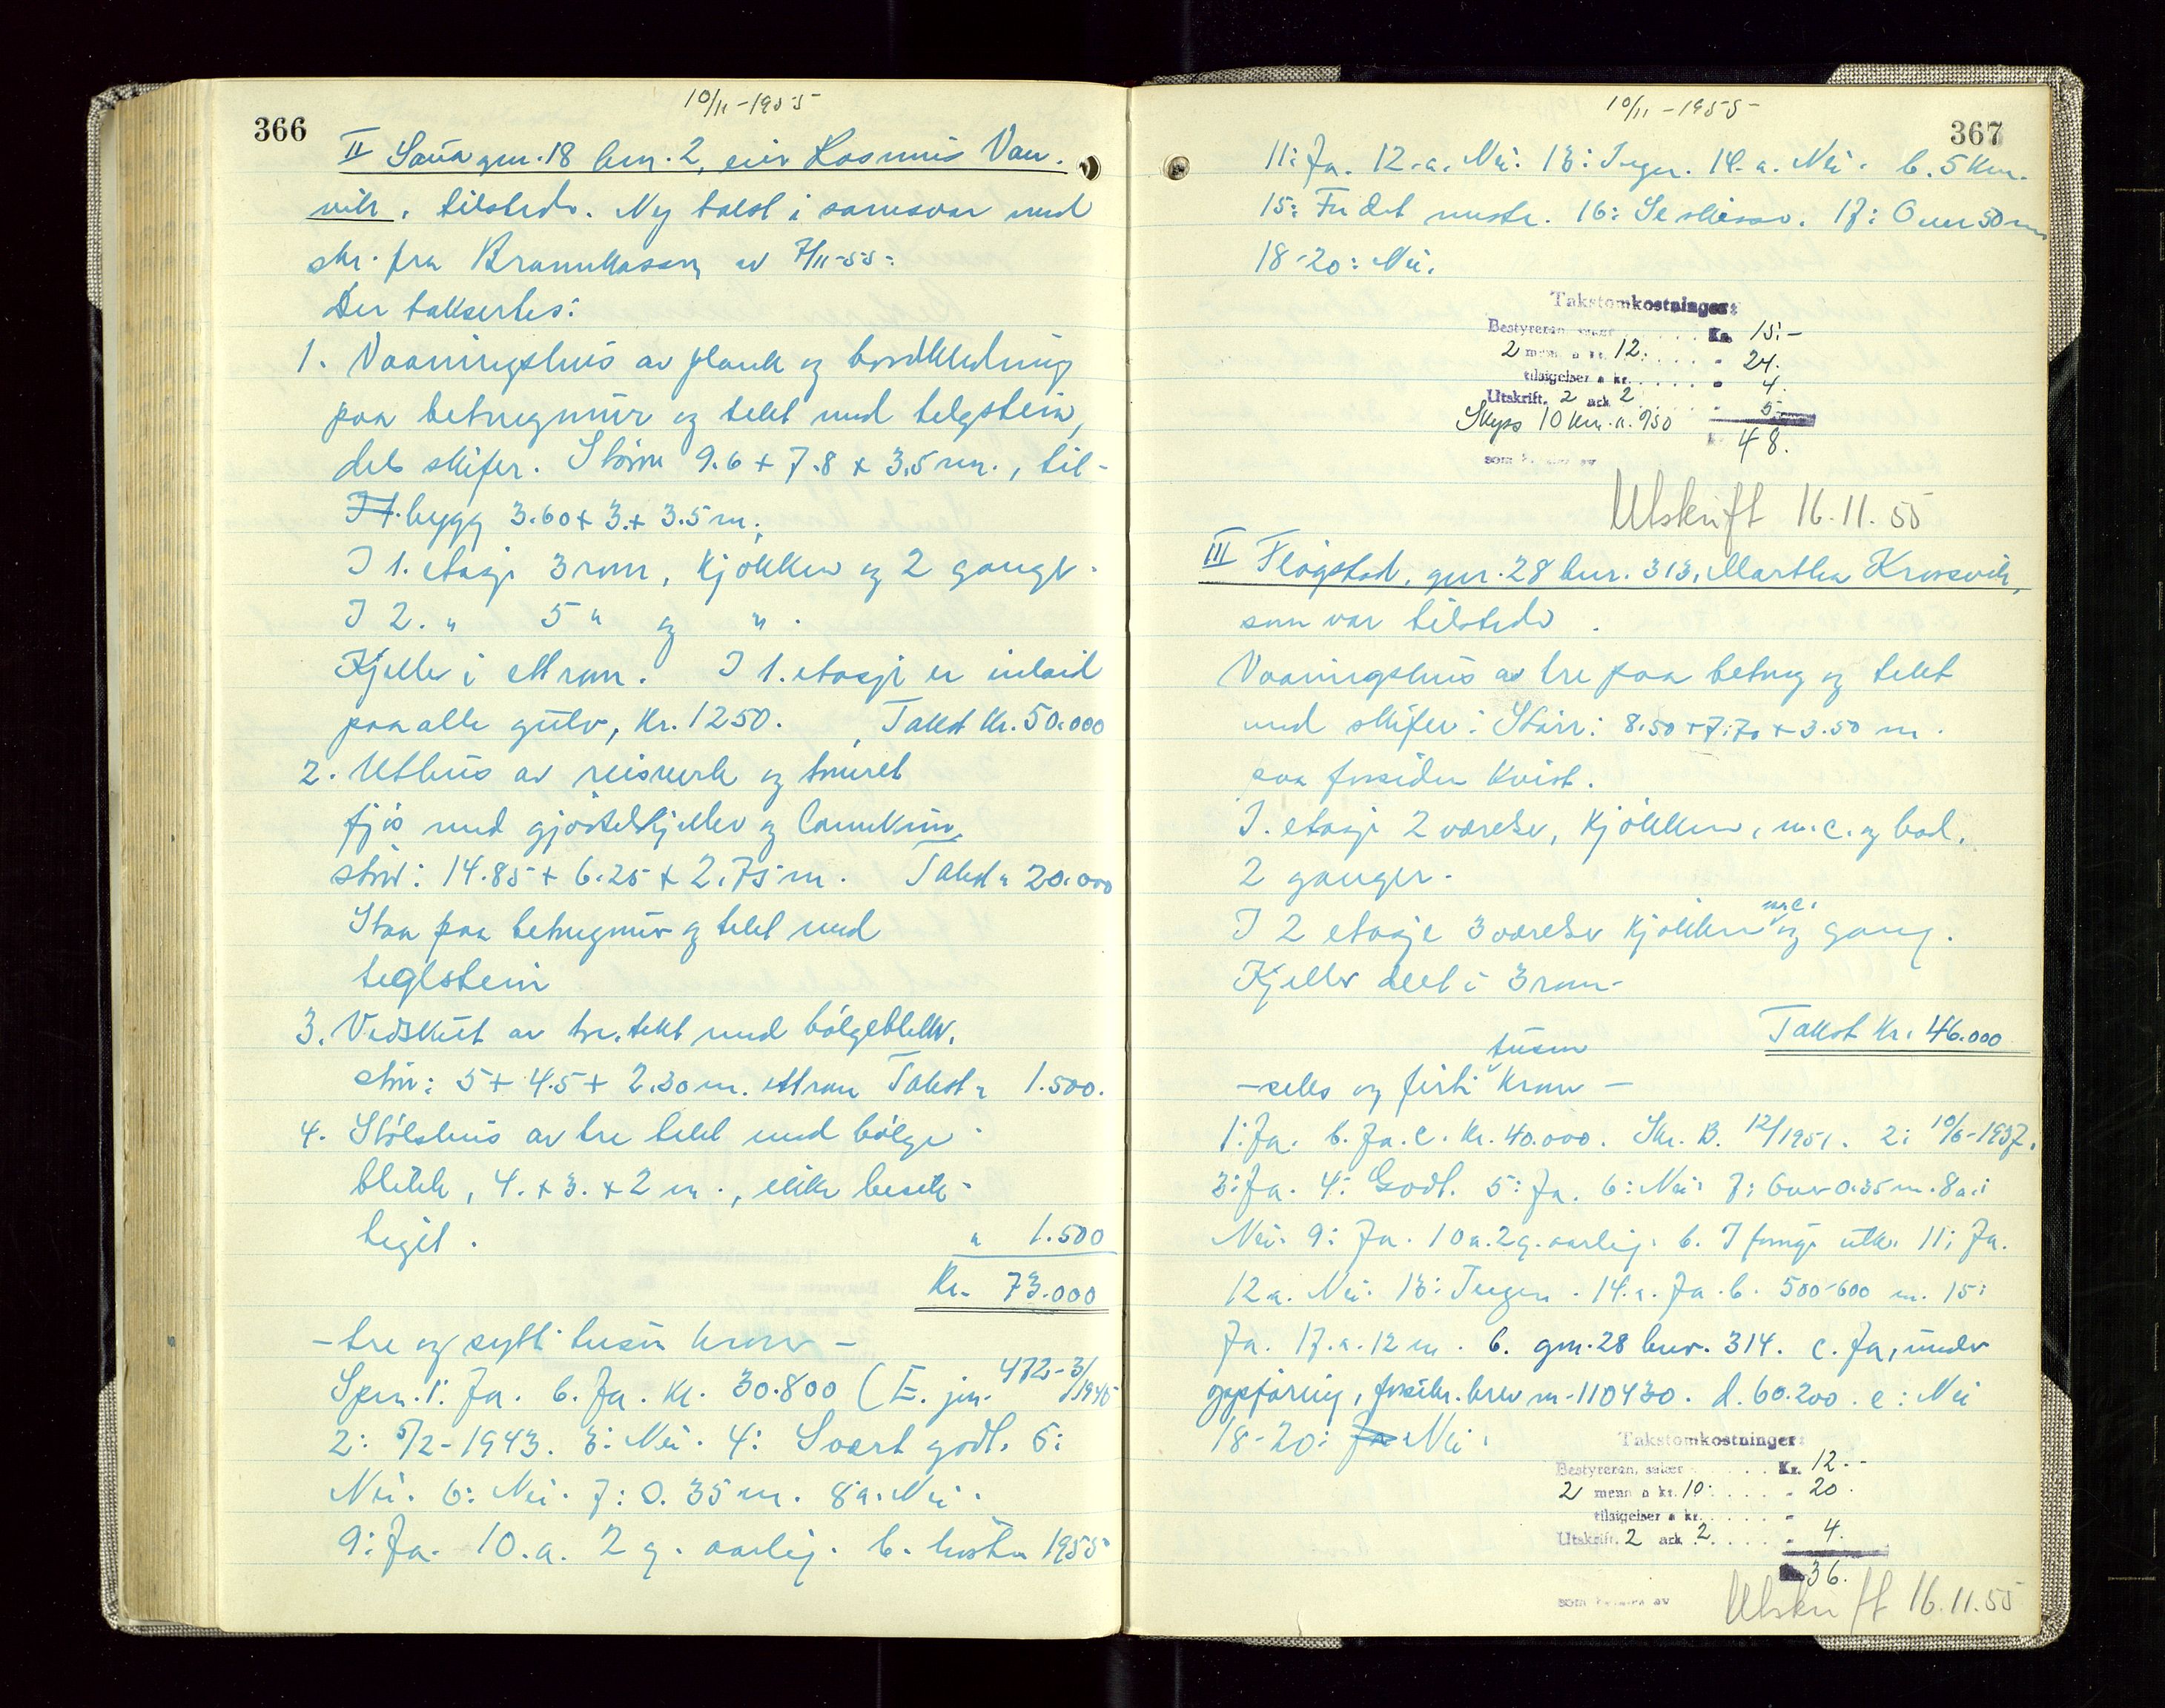 366
10/11-1955
II Saua gnr. 18 bnr. 2, eier Rasmus Van-
vik, tilstede. Ny takst i samsvar med
skr. fra Brannkassen av 7/11-55.
Der taksertes:
1. Vaaningshus av plank og bordkledning
paa betongmur og tekt med teglstein,
dels skifer. Större 9.6 + 7.8 x 3.5 m., til-
bygg 3.60 + 3. + 3.5 m.
I 1. etasje 3 rom, kjökken og 2 gange.
I 2. " 5 " og ".
Kjeller i ett rom. I 1. etasje er inlaid
paa alle gulv, kr. 1250. Takst kr. 50.000
2. Uthus av reisverk og muret
fjös med gjödselkjeller og
större: 14.85 + 6.25 + 2.75 m. Takst " 20.000
Staa paa betongmur og tekt med
teglstein
3. Vedskut av tre, tekt med bölgeblekk.
större: 5 + 4.5 + 2.30 m. ett rom Takst " 1.500.
4. Stölshus av tre tekt med bölge
blekk, 4. + 3. + 2 m., ikke besik-
tiget. " 1.500
Kr. 73.000
- tre og sytti tusen kroner -
Sprm. 1: Ja. b. Ja. Kr. 30.800 (E. jnr. 472-3/1945
2: 5/2-1943. 3: Nei. 4: Svært godt. 5:
Nei. 6: Nei. 7: 0.35 m. 8a: Nei.
9: Ja. 10.a. 2 g. aarleg. b. hösten 1955
10/11-1955
367
11: Ja. 12.a. Nei. 13: Ingen. 14.a. Nei. b. 5 km.
15: For det meste. 16: Se skisse. 17: Over 50 m
18-20: Nei.
Takstomkostninger:
Bestyreren, salær . . . . Kr. 15.-
2 menn a kr. 12. . . . . " 24.
tilsigelser a kr. . . . . " 4.
Utskrift, 2 ark 2 . . . . " 5.
Skyss 10 km. a. 950
48.
Utskrift 16.11.55
III Flögstad, gnr. 28 bnr. 313, Martha Krossvik,
som var tilstede.
Vaaningshus av tre paa betong og tekt
med skifer. Större: 8.50 + 7.70 + 3.50 m.
paa forsiden kvist.
I. etasje 2 værelser, kjökken, w.c. og bad,
2 ganger.
I 2 etasje 3 værelser kjökken w.c. og gang.
Kjeller delt i 3 rom.
Takst kr. 46.000
- seks og förti tusen kroner -
1: Ja. b. Ja. c. kr. 40.000. Skr. B. 12/1951. 2: 10/6-1937.
3: Ja. 4: Godt. 5: Ja. 6: Nei. 7: Over 0.35 m. 8a.:
Nei. 9: Ja. 10a. 2 g. aarleg. b. I forrige uke. 11: Ja.
12a. Nei. 13: Ingen. 14.a. Ja. b. 500-600 m. 15:
Ja. 17.a. 12 m. b. gnr. 28 bnr. 314. c. Ja, under
oppföring, forsikr. brev nr. 110430. d. 60.200. e: Nei
18-20: Ja Nei.
Takstomkostninger:
Bestyreren, salær . . . . Kr. 12.-
2 menn a kr. 10. . . . . " 20.
tilsigelser a kr. . . . . "
Utskrift, 2 ark 2 . . . . " 4.
36.
Utskrift 16.11.55